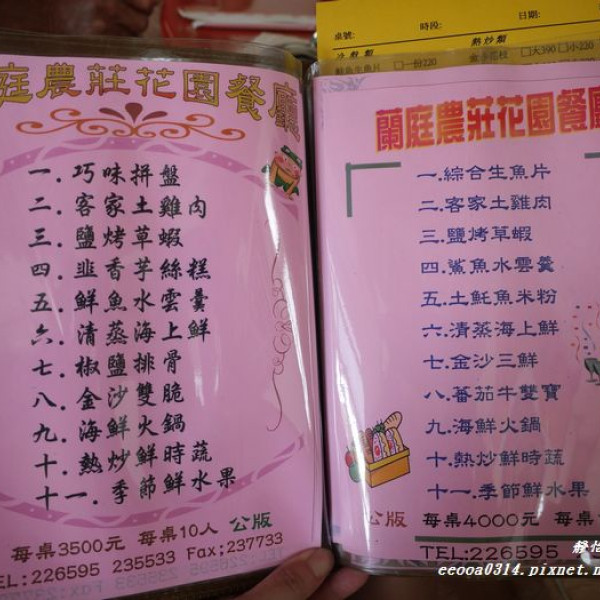 庭農莊花園餐廳
一.巧味拼盤
二.客家土雞肉
三.鹽烤草蝦
四.韭香芋絲糕
五.鮮魚水雲羹
六.清蒸海上鮮
七.椒鹽排骨
八.金沙雙脆
九.海鮮火鍋
十.熱炒鮮時蔬
十一.季節鮮水果
每桌3500元 每桌10人 公版
TEL:226595 235533 Fax;237733
桌號: 時段: 日期:
冷盤類 熱炒類
一份220 大390 小220
蘭庭農莊花園餐廳
一.綜合生魚片
二.客家土雞肉
三.鹽烤草蝦
四.鯊魚水雲羹
五.土魠魚米粉
六.清蒸海上鮮
七.金沙三鮮
八.蕃茄牛雙寶
九.海鮮火鍋
十.熱炒鮮時蔬
十一.季節鮮水果
公版 每桌4000元 每桌
TEL:226595
eeooa0314.pixnet.n